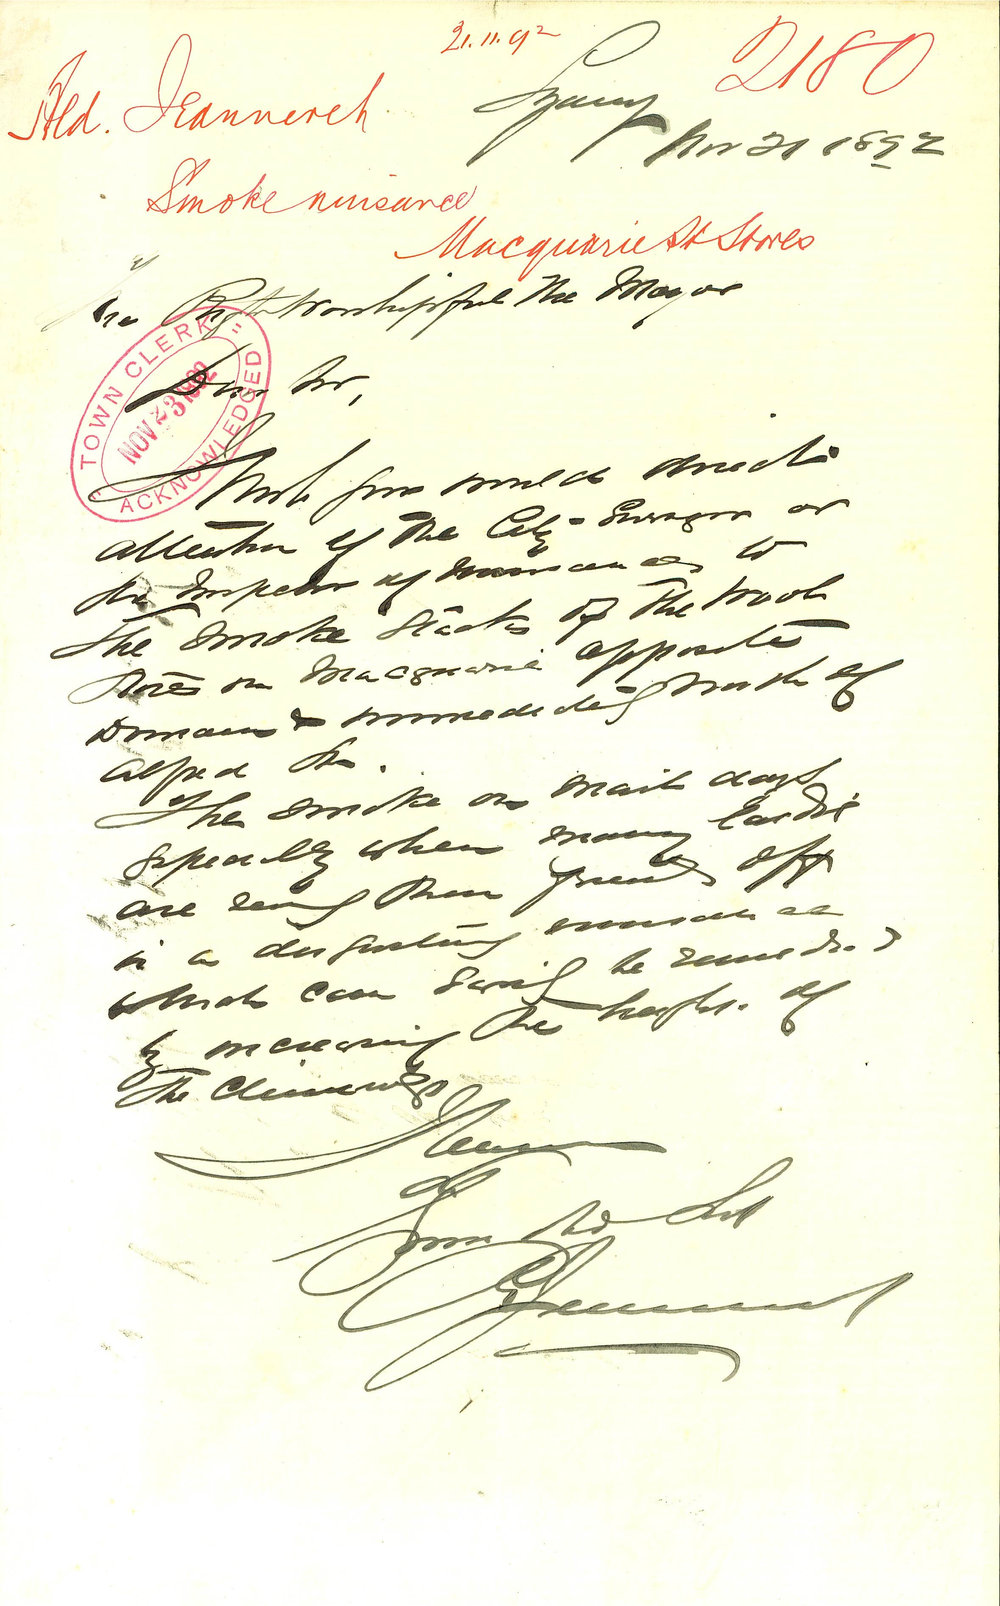 21.11.92
2180
Ald. Jeanneret
Smoke nuisance
Macquarie St Stores
Sydney
Nov 21 1892
The Right Worshipful the Mayor
TOWN CLERK
NOV 23 1892
ACKNOWLEDGED
Dear Sir,
I wish you would direct
attention of the City Surveyor or
the Inspector of Nuisances to
the smoke stacks of the Wool
Stores on Macquarie opposite
Domain & immediately north of
Alfred St.
The smoke on mail days
especially when many ladies
are seeing their friends off
is a disgusting nuisance
which can easily be remedied
by increasing the height of
the chimneys
Yours
C Jeanneret